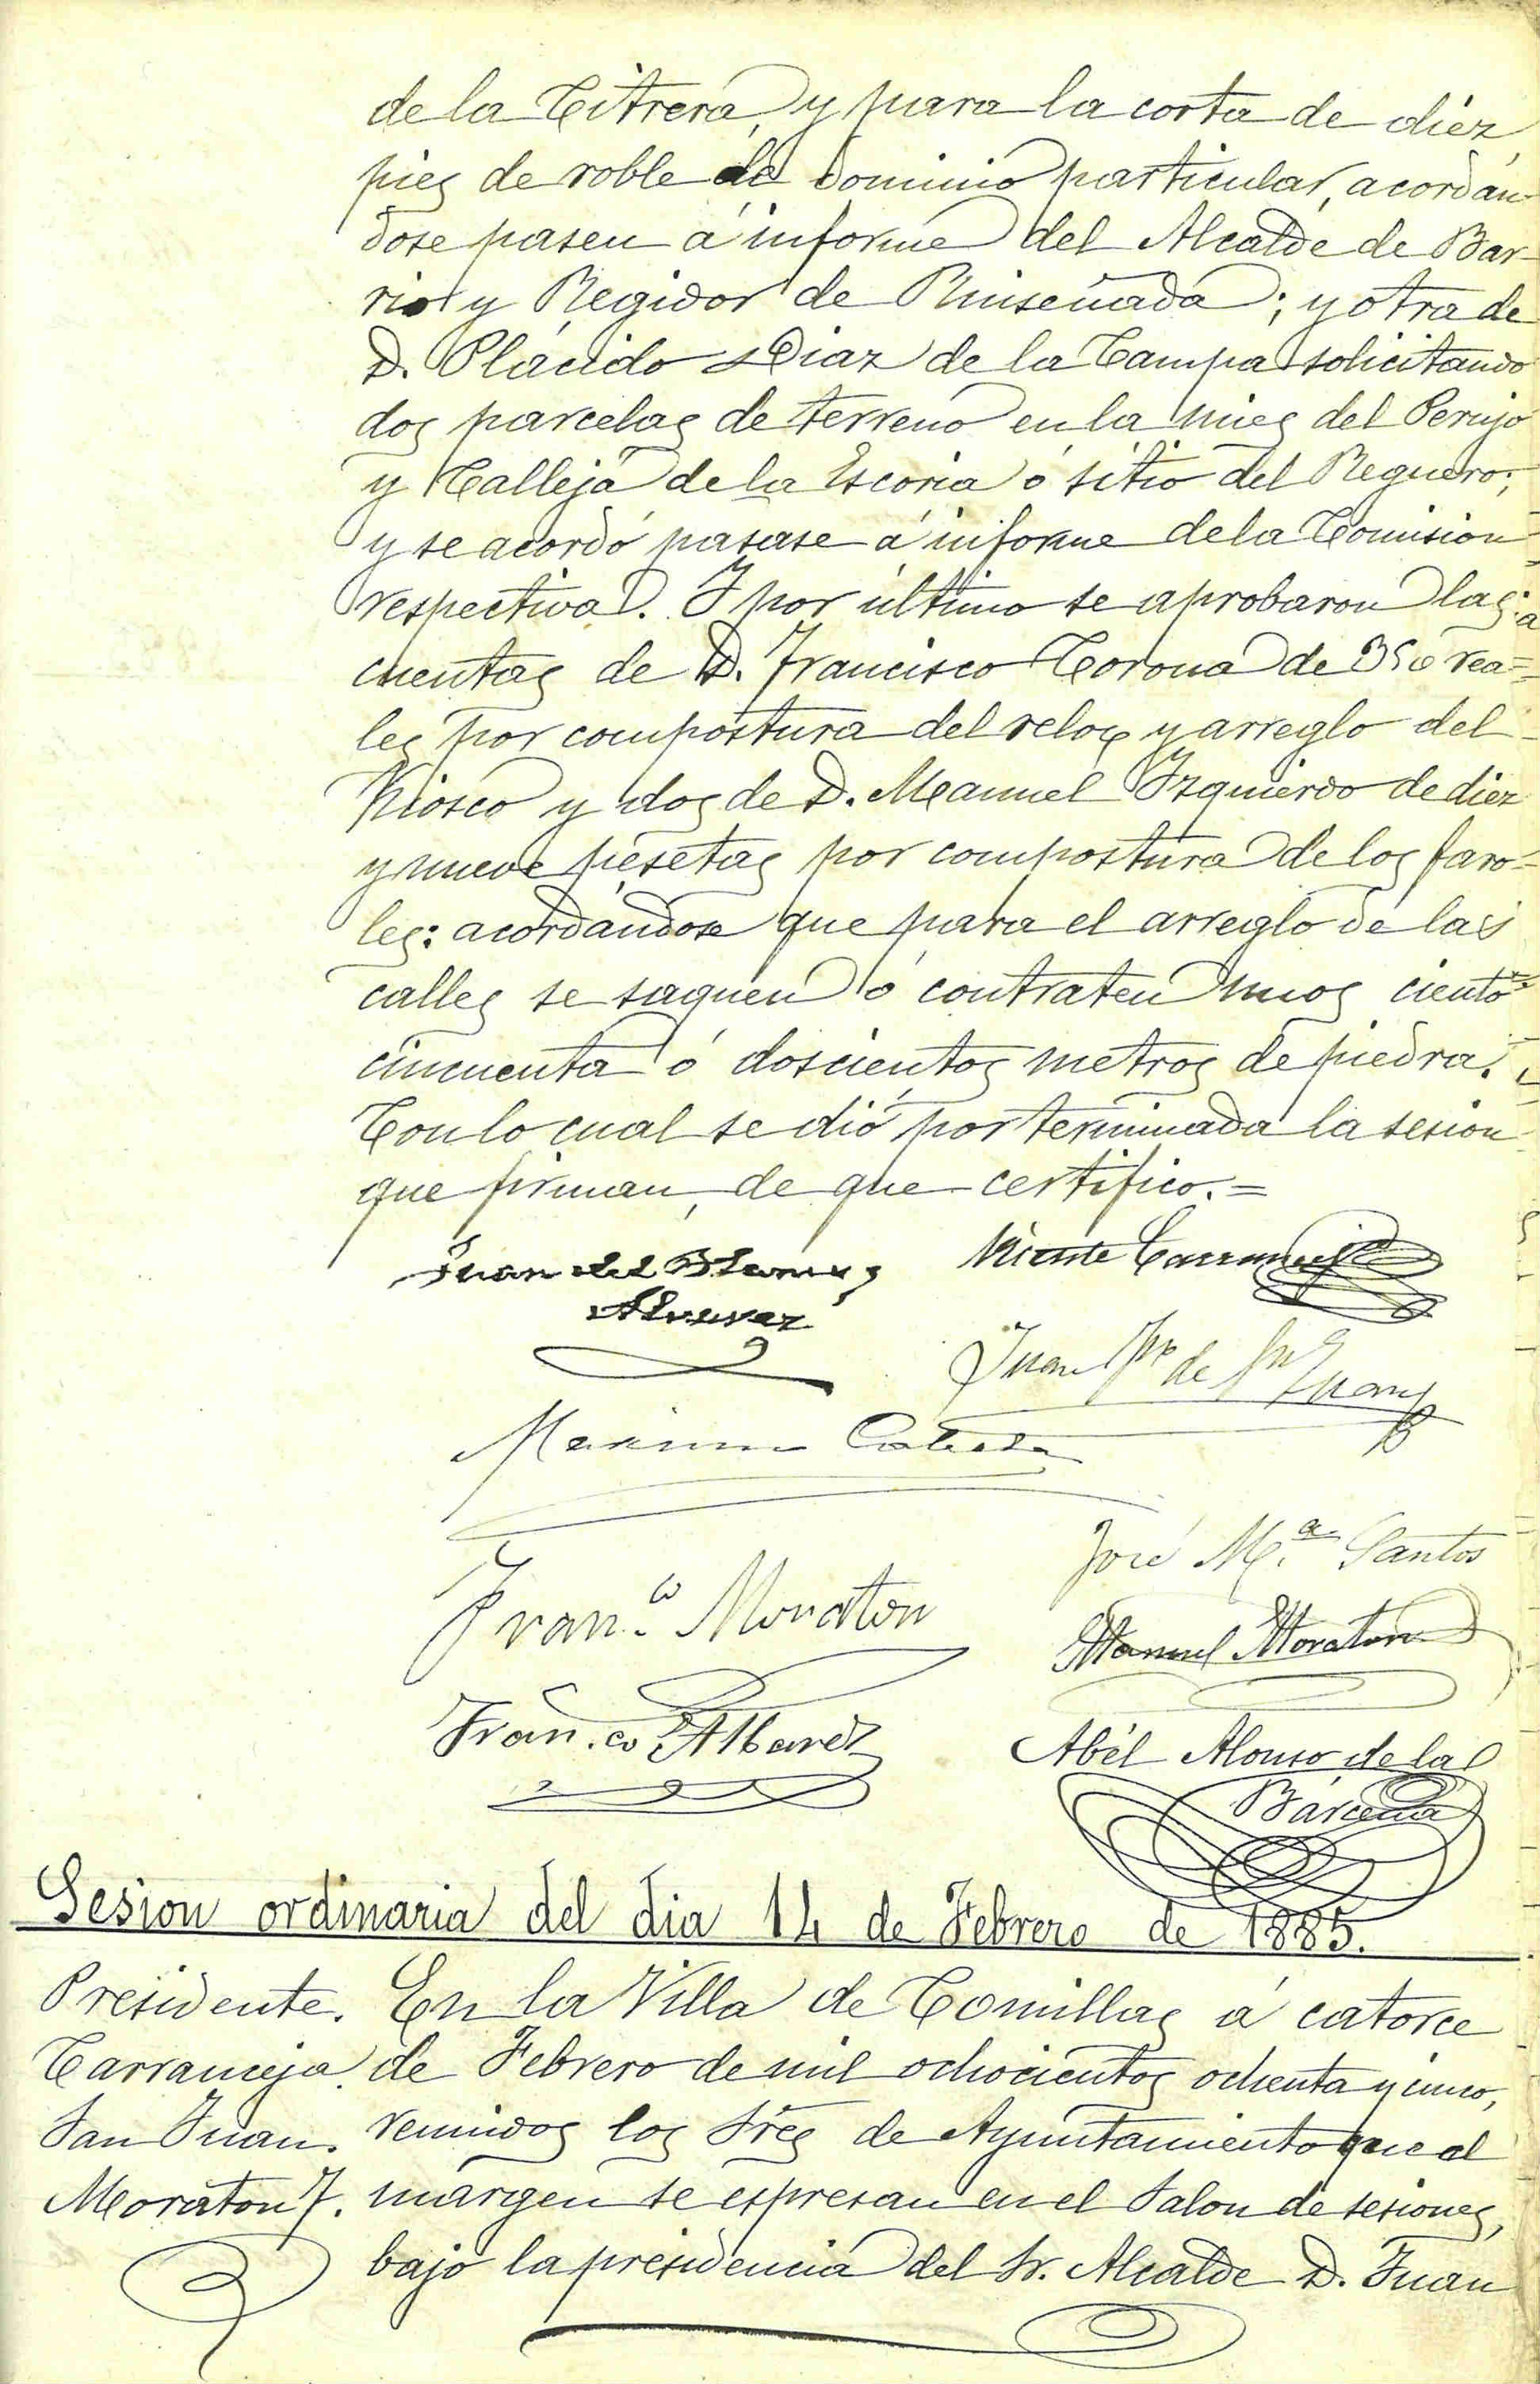 de la Citrera, y para la corta de diéz
pies de roble de dominio particular, acordán-
dose pasen á informe del Alcalde de Bar-
rio y Regidor de Ruiseñada; y otra de
D. Plácido Diaz de la Campa solicitando
dos parcelas de terreno en la mies del Perujo
y Calleja de la Escoria ó sitio del Reguero;
y se acordó pasase á informe de la Comision
respectiva. Y por último se aprobaron las
cuentas de D. Francisco Corona de 350 rea=
les por compostura del relox y arreglo del
Kiosco y dos de D. Manuel Izquierdo de diez
y nueve pesetas por compostura de los faro=
les: acordandose que para el arreglo de las
calles se saquen ó contraten unos ciento
cincuenta ó doscientos metros de piedra.
Con lo cual se dió por terminada la sesion
que firman, de que certifico.=
Juan del
Vicente Carranceja
Alvarez
Juan de
Juan
Maximo
José M.ª Santos
Fran.co Moraton
Manuel Moraton
Fran.co
Abél Alonso de la
Bárcena
Sesion ordinaria del dia 14 de Febrero de 1885.
Presidente.
Carranceja.
San Juan.
Moraton F.
En la Villa de Comillas á catorce
de Febrero de mil ochocientos ochenta y cinco,
reunidos los Sres de Ayuntamiento que al
márgen se espresan en el Salon de sesiones,
bajo la presidencia del Sr. Alcalde D. Juan